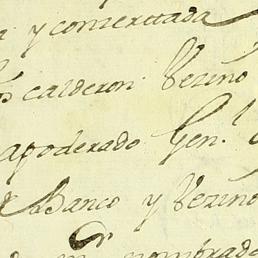 y consertada
calderon Vezino
apoderado Gen.l
Banco y Vezino
nombrado